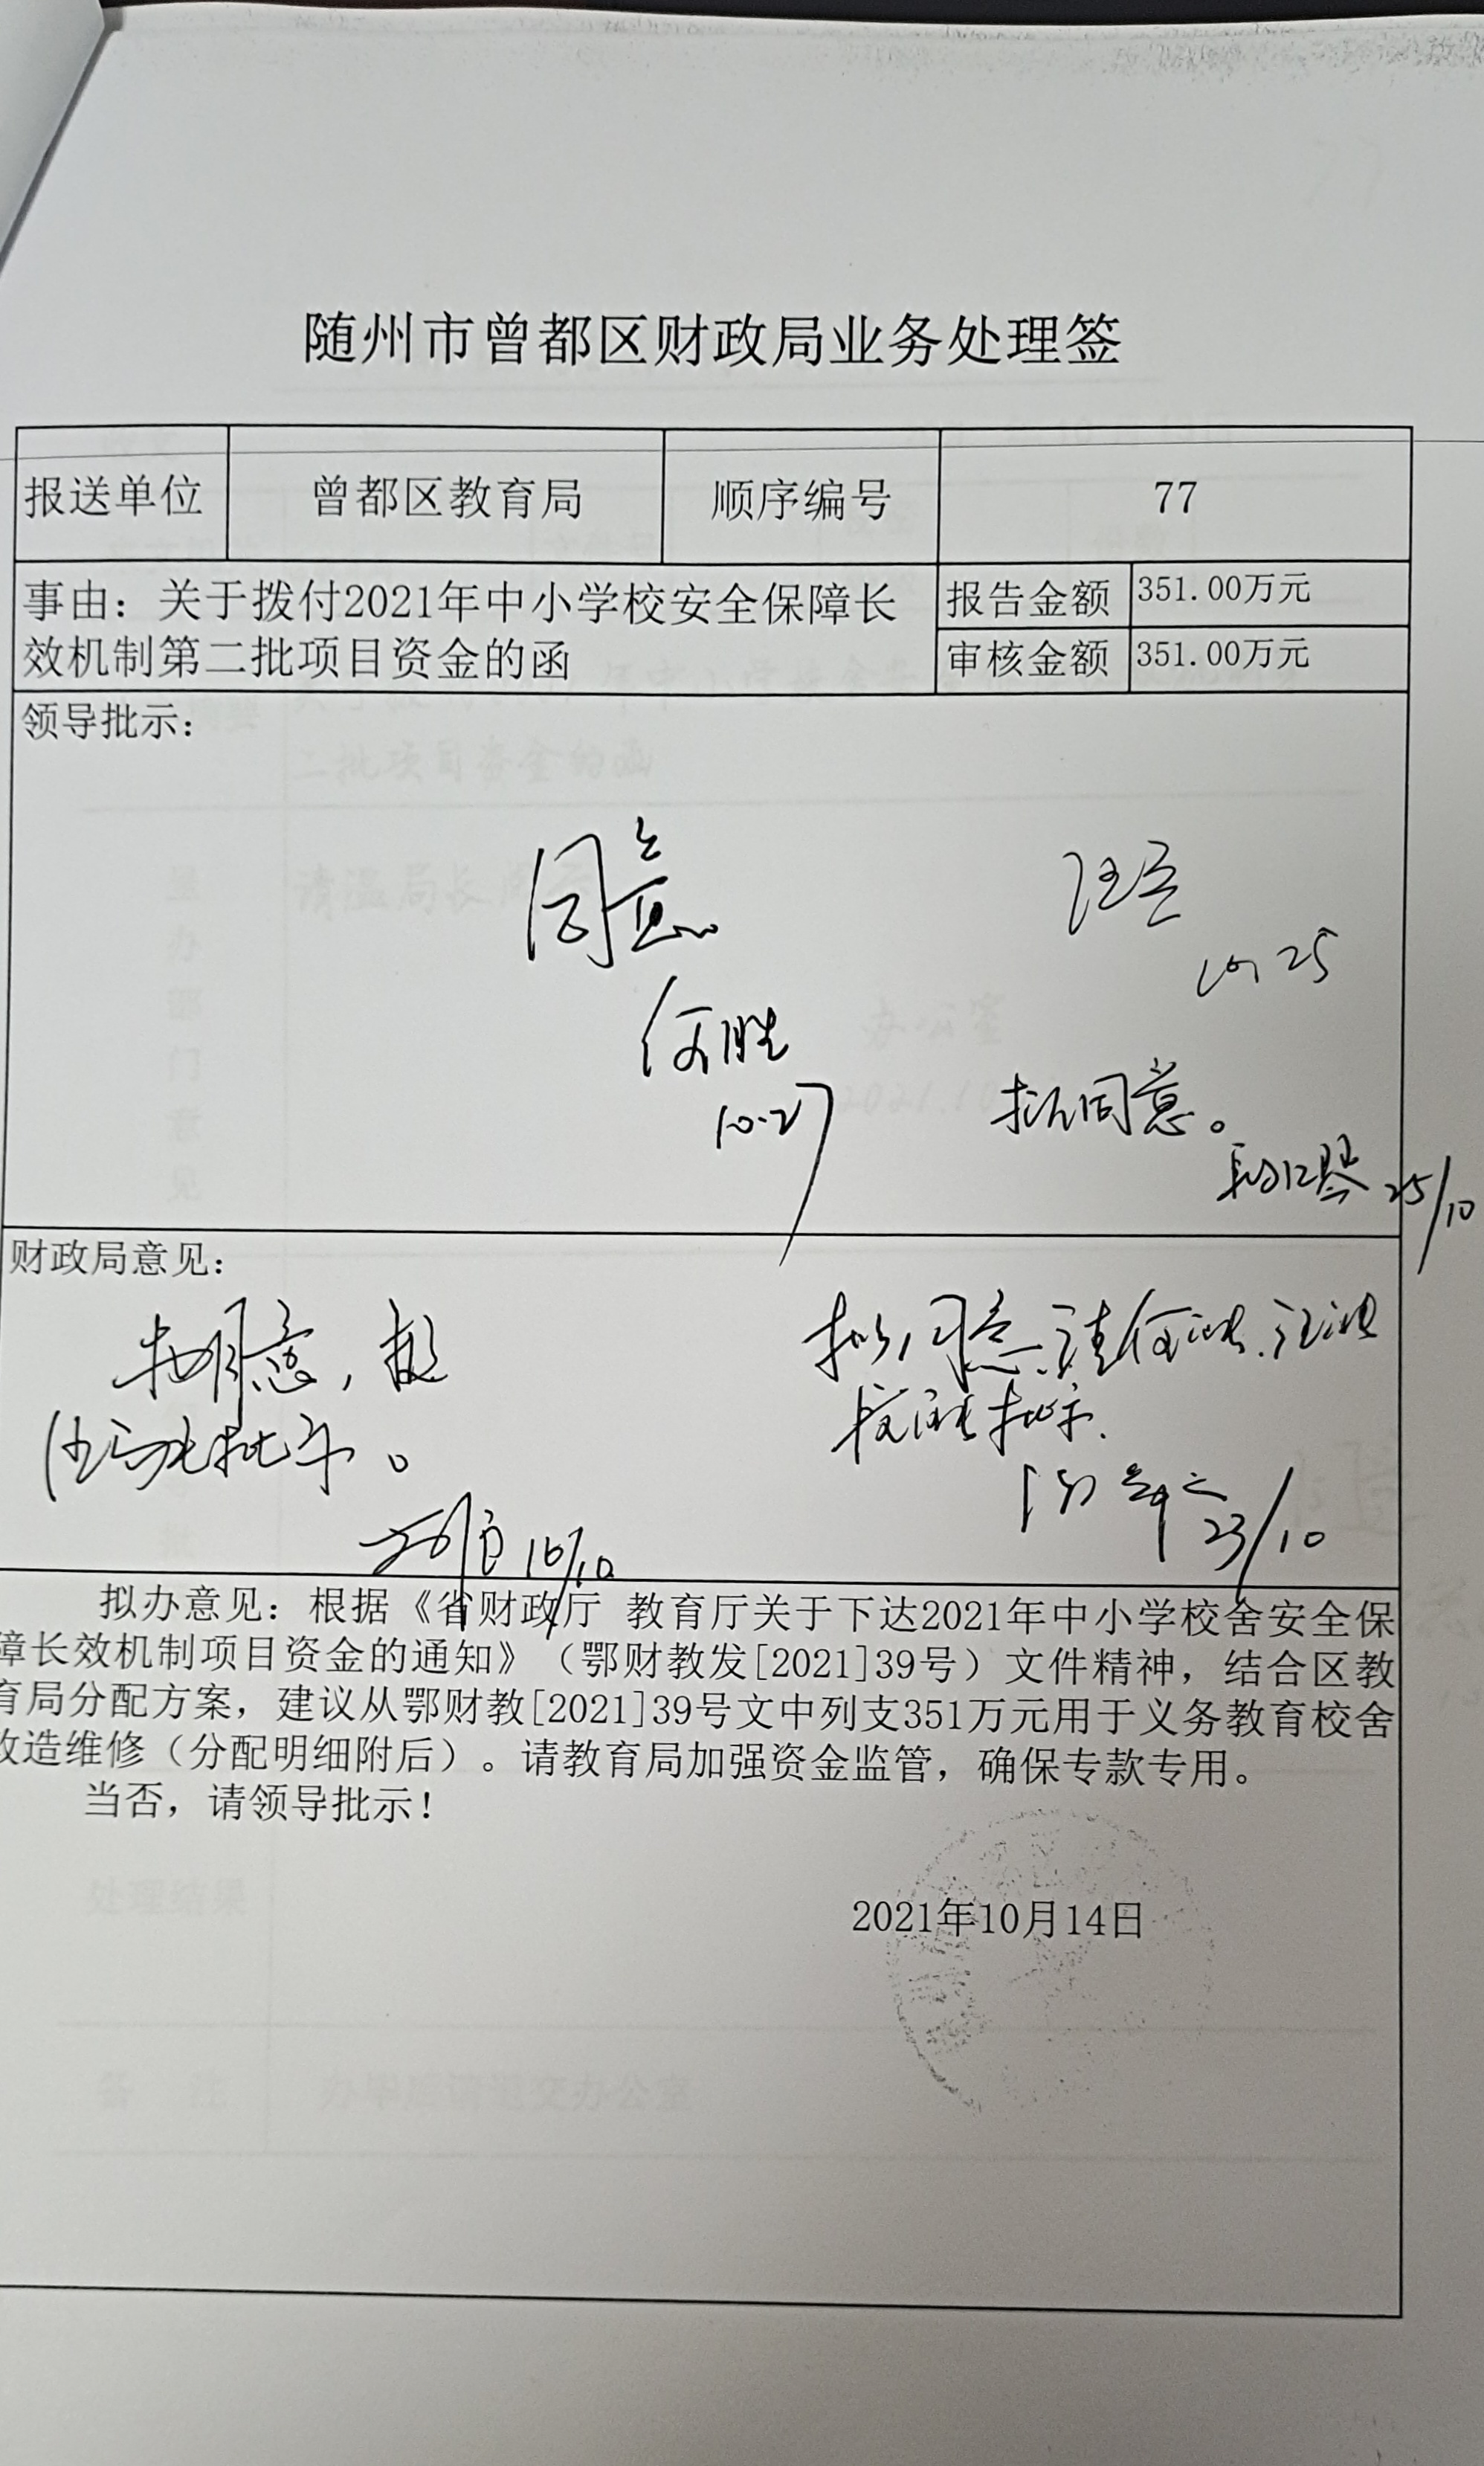 随州市曾都区财政局业务处理签
报送单位 曾都区教育局 顺序编号 77
事由：关于拨付2021年中小学校安全保障长
效机制第二批项目资金的函
报告金额 351.00万元
审核金额 351.00万元
领导批示：
同意
何胜
10.27
25
拟同意。
25/10
财政局意见：
批示。
16/10
拟同意,请
批示.
23/10
拟办意见：根据《省财政厅 教育厅关于下达2021年中小学校舍安全保
障长效机制项目资金的通知》（鄂财教发[2021]39号）文件精神，结合区教
育局分配方案，建议从鄂财教[2021]39号文中列支351万元用于义务教育校舍
改造维修（分配明细附后）。请教育局加强资金监管，确保专款专用。
当否，请领导批示！
2021年10月14日